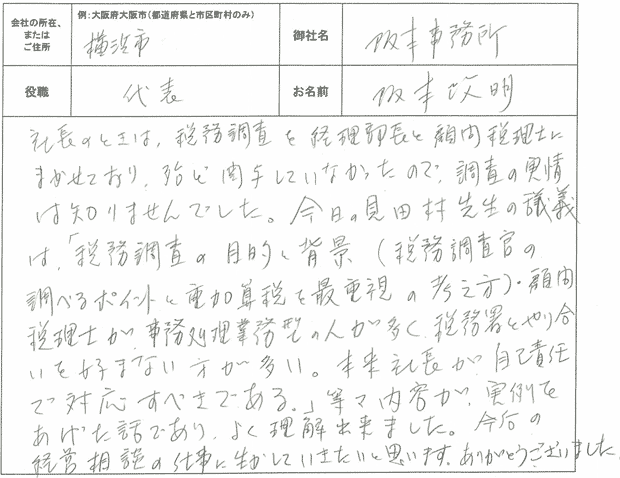 会社の所在、
または
ご住所
例:大阪府大阪市(都道府県と市区町村のみ)
横浜市
御社名
阪本事務所
役職
代表
お名前
阪本 明
社長のときは、税務調査を経理部長と顧問税理士に
まかせており、殆ど関与していなかったので、調査の実情
は知りませんでした。今日の見田村先生の講義
は、「税務調査の目的と背景(税務調査官の
調べるポイントと重加算税を最重視の考え方)・顧問
税理士が、事務処理業務型の人が多く、税務署とやり合
いを好まない方が多い。本来社長が、自己責任
で対応すべきである。」等々内容が、実例を
あげた話であり、よく理解出来ました。今后の
経営相談の仕事に生かしていきたいと思います。ありがとうございました。